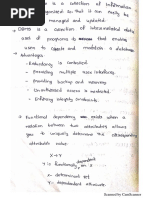 is a collection of Information
organized so that it can easily be
managed and updated.
DBMS is a collection of interrelated data
set of programs to access that enables
users to create and maintain a database
Advantages:
- Redundancy is controlled.
- Providing multiple user interfaces.
- Providing backup and recovery
- Unauthorised access is restricted.
- Enforcing integrity constraints.
Functional dependency exists when a
relation between two attributes allows
you to uniquely determine the corresponding
attribute's value.
X→Y
Y is functionally dependent on X
X - determinant set
Y - dependent attribute.
Scanned by CamScanner